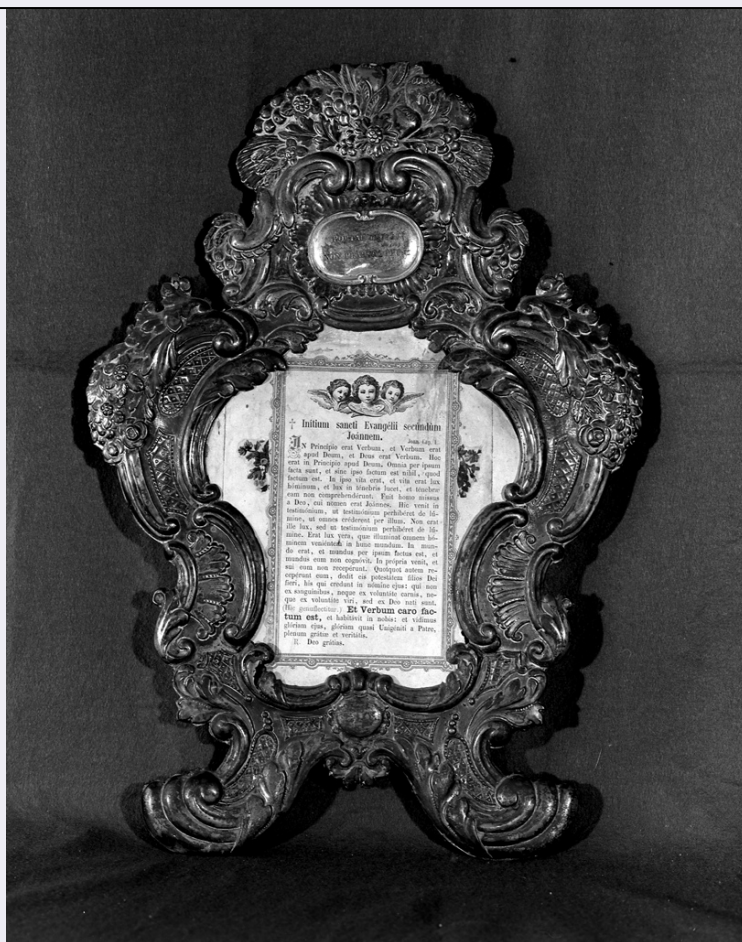 † Initium sancti Evangélii secúndum
Joánnem.
Joan. cap. 1.
IN Princípio erat Verbum, et Verbum erat
apud Deum, et Deus erat Verbum. Hoc
erat in Princípio apud Deum. Omnia per ipsum
facta sunt, et sine ipso factum est nihil, quod
factum est. In ipso vita erat, et vita erat lux
hóminum, et lux in ténebris lucet, et ténebræ
eam non comprehendérunt. Fuit homo missus
a Deo, cui nomen erat Joánnes. Hic venit in
testimónium, ut testimónium perhibéret de lú-
mine, ut omnes créderent per illum. Non erat
ille lux, sed ut testimónium perhibéret de lú-
mine. Erat lux vera, quæ illuminat omnem hó-
minem veniéntem in hunc mundum. In mun-
do erat, et mundus per ipsum factus est, et
mundus eum non cognóvit. In própria venit, et
sui eum non recepérunt. Quotquot autem re-
cepérunt eum, dedit eis potestátem fílios Dei
fíeri, his qui credunt in nómine ejus: qui non
ex sanguínibus, neque ex voluntáte carnis, ne-
que ex voluntáte viri, sed ex Deo nati sunt.
(Hic genufléctitur.) Et Verbum caro fac-
tum est, et habitávit in nobis: et vídimus
glóriam ejus, glóriam quasi Unigéniti a Patre,
plenum grátiæ et veritátis.
℟. Deo grátias.